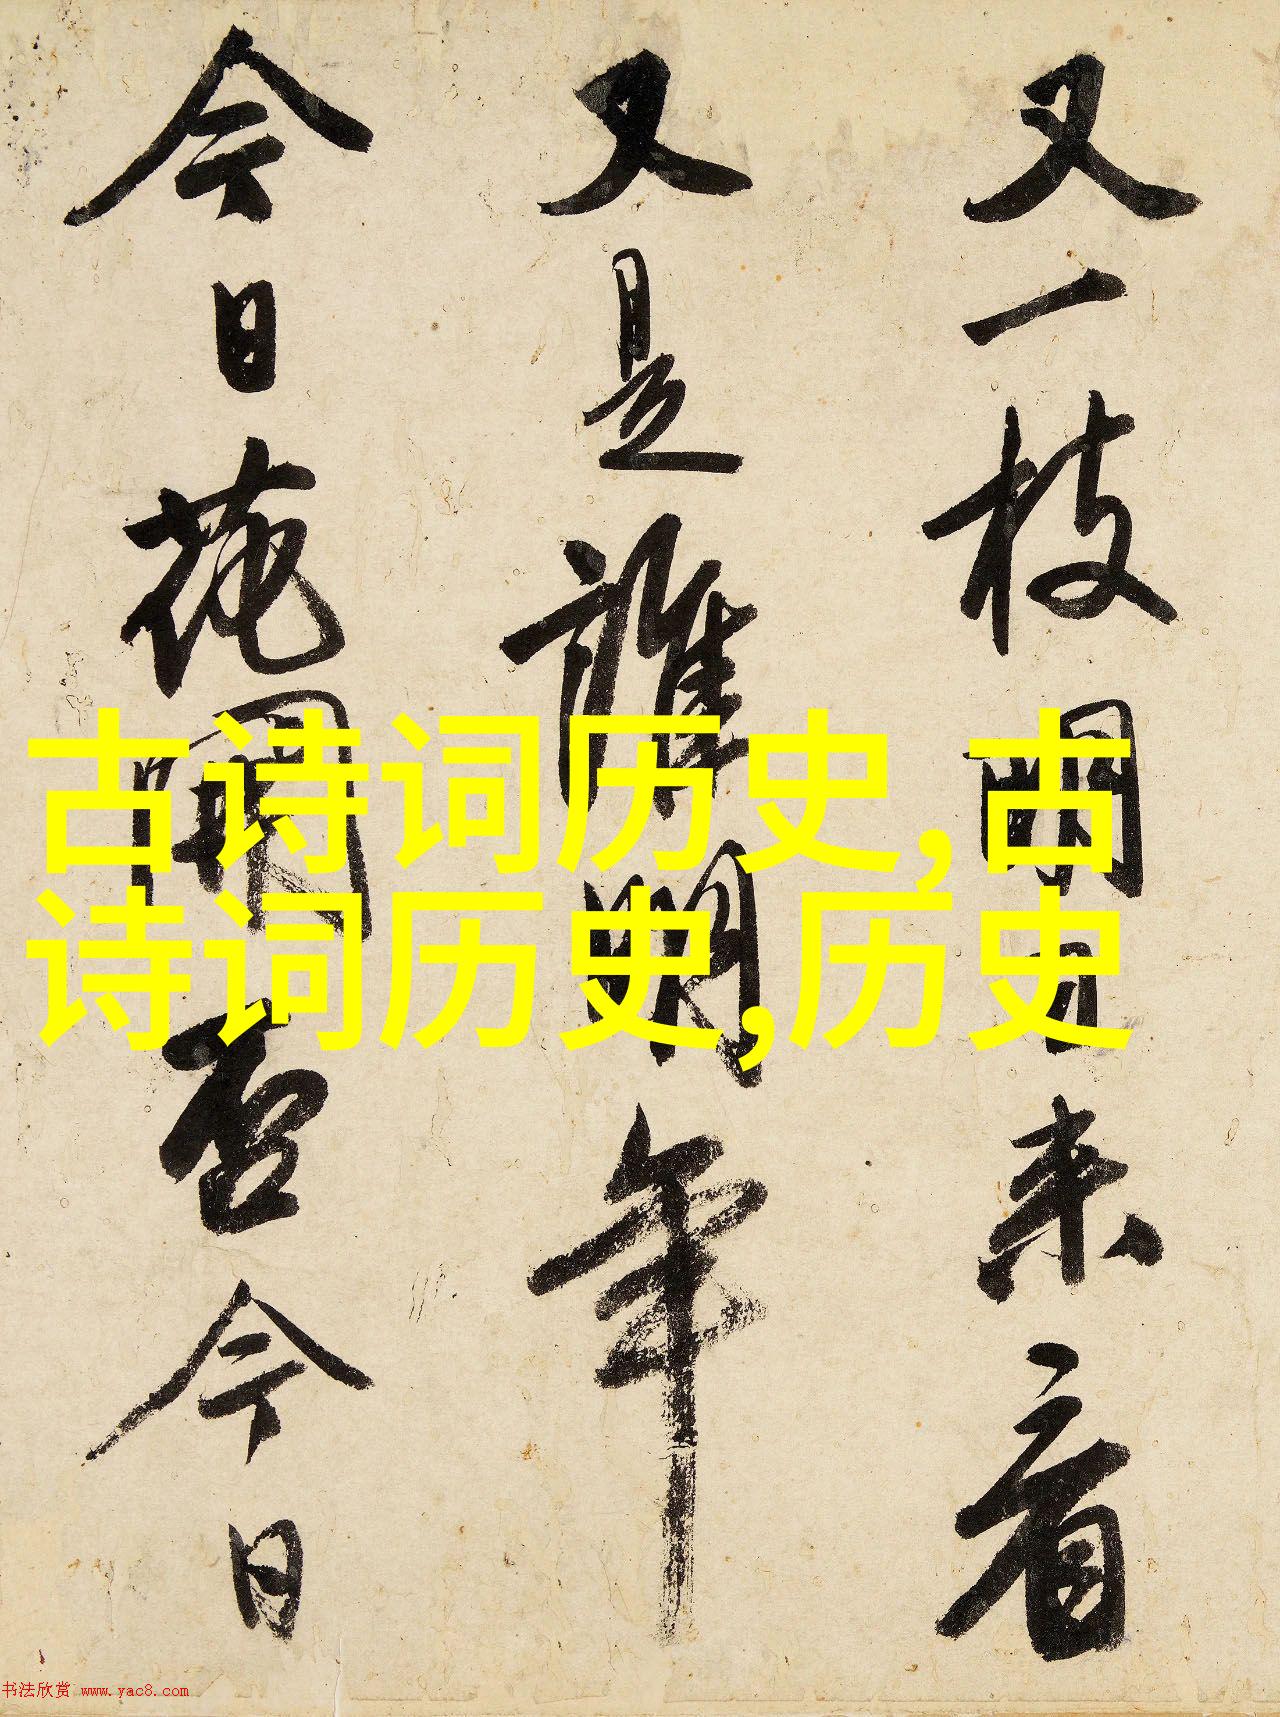 又一枝明日来看
又是誰明年
今日花開否今日
古诗词历史,古
诗词历史,历史
书法欣赏 www.yac8.com